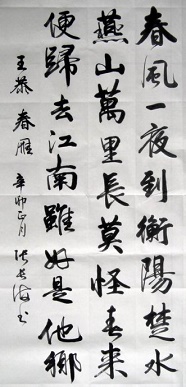 春風一夜到衡陽楚水
燕山萬里長莫怪春来
便歸去江南雖好是他鄉
王恭 春雁 辛卯正月